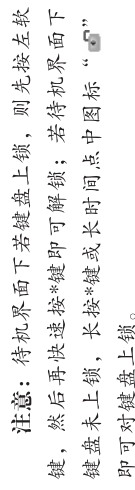 注意：待机界面下若键盘上锁，则先按左软
键，然后再快速按*键即可解锁；若待机界面下
键盘未上锁，长按*键或长时间点中图标“”
即可对键盘上锁。